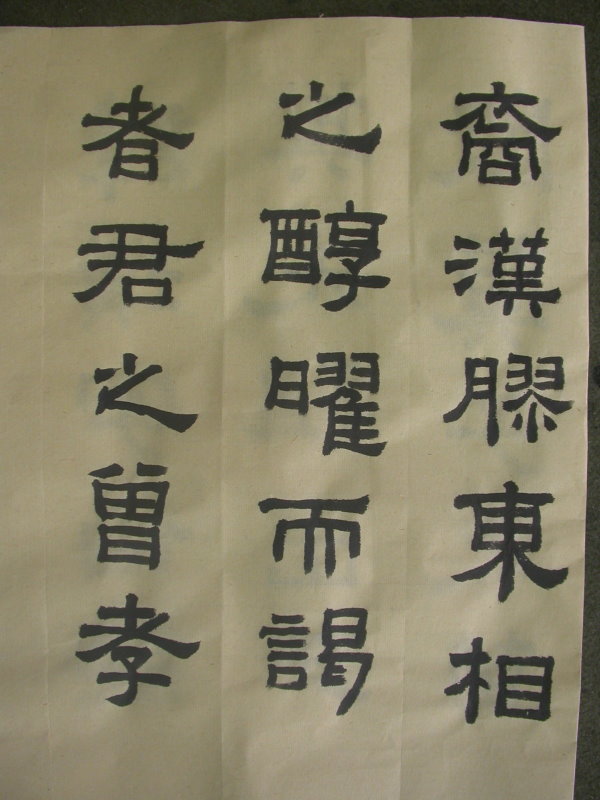 裔漢膠東相
之醇曜而謁
者君之曾孝